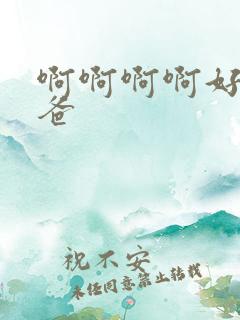 啊啊啊啊好
爸
祝不安
未经同意禁止转载